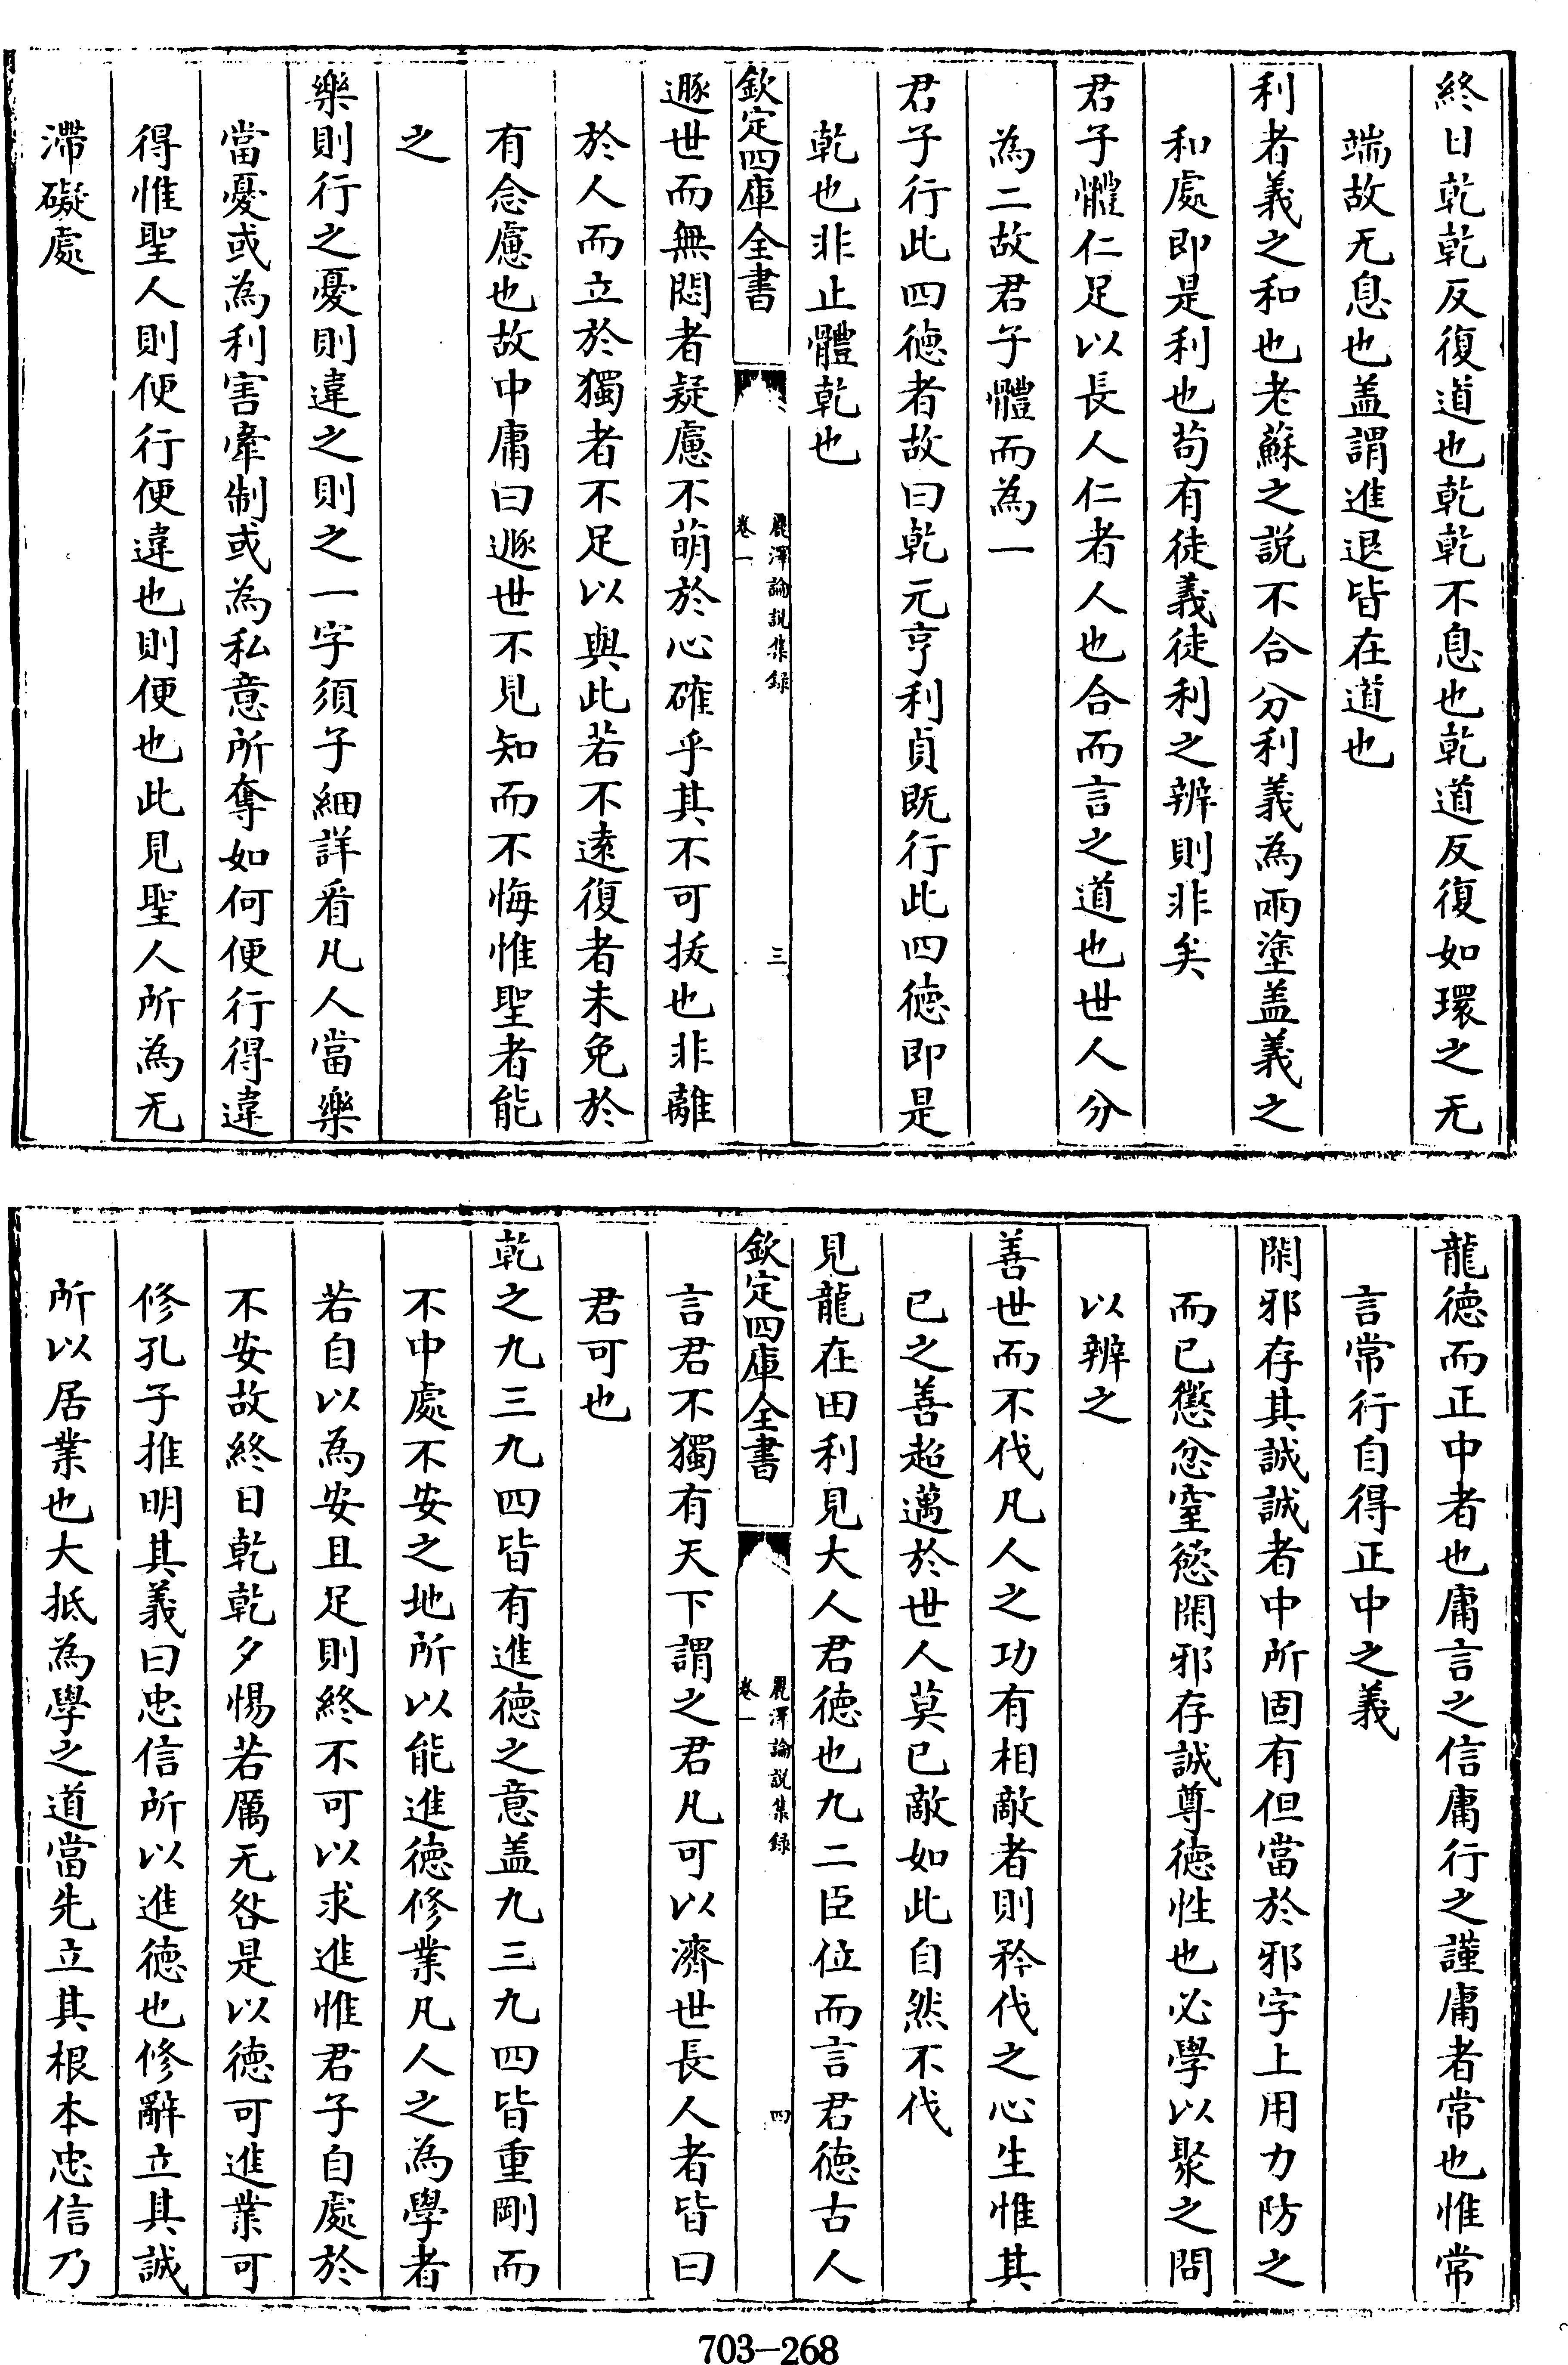 終日乾乾反復道也乾乾不息也乾道反復如環之无
端故无息也盖謂進退皆在道也
利者義之和也老蘇之説不合分利義為兩塗盖義之
和處即是利也苟有徒義徒利之辨則非矣
君子體仁足以長人仁者人也合而言之道也世人分
為二故君子體而為一
君子行此四徳者故曰乾元亨利貞既行此四徳即是
乾也非止體乾也
欽定四庫全書
麗澤論説集録
卷一
三
遯世而無悶者疑慮不萌於心確乎其不可拔也非離
於人而立於獨者不足以與此若不逺復者未免於
有念慮也故中庸曰遯世不見知而不悔惟聖者能
之
樂則行之憂則違之則之一字須子細詳看凡人當樂
當憂或為利害牽制或為私意所奪如何便行得違
得惟聖人則便行便違也則便也此見聖人所為无
滯礙處
龍徳而正中者也庸言之信庸行之謹庸者常也惟常
言常行自得正中之義
閑邪存其誠誠者中所固有但當於邪字上用力防之
而已懲忿窒慾閑邪存誠尊徳性也必學以聚之問
以辨之
善世而不伐凡人之功有相敵者則矜伐之心生惟其
已之善超邁於世人莫已敵如此自然不伐
見龍在田利見大人君徳也九二臣位而言君徳古人
欽定四庫全書
麗澤論説集録
卷一
四
言君不獨有天下謂之君凡可以濟世長人者皆曰
君可也
乾之九三九四皆有進徳之意盖九三九四皆重剛而
不中處不安之地所以能進徳修業凡人之為學者
若自以為安且足則終不可以求進惟君子自處於
不安故終日乾乾夕惕若厲无咎是以徳可進業可
修孔子推明其義曰忠信所以進徳也修辭立其誠
所以居業也大抵為學之道當先立其根本忠信乃
703-268